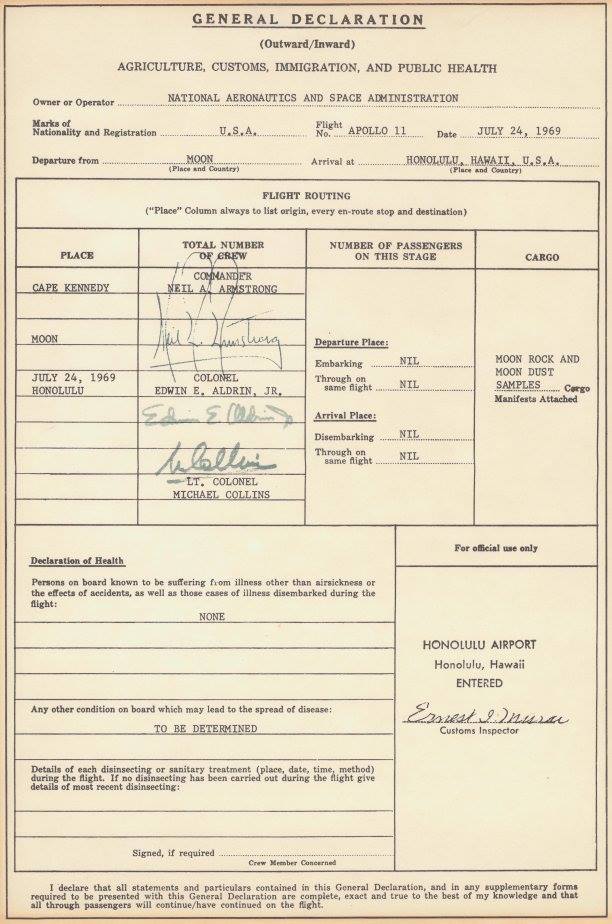 GENERAL DECLARATION
(Outward/Inward)
AGRICULTURE, CUSTOMS, IMMIGRATION, AND PUBLIC HEALTH
Owner or Operator NATIONAL AERONAUTICS AND SPACE ADMINISTRATION
Marks of
Nationality and Registration U.S.A. Flight
No. APOLLO 11 Date JULY 24, 1969
Departure from MOON Arrival at HONOLULU, HAWAII, U.S.A.
(Place and Country) (Place and Country)
FLIGHT ROUTING
("Place" Column always to list origin, every en-route stop and destination)
PLACE
TOTAL NUMBER
OF CREW
NUMBER OF PASSENGERS
ON THIS STAGE
CARGO
CAPE KENNEDY
MOON
JULY 24, 1969
HONOLULU
COMMANDER
NEIL A. ARMSTRONG
Neil A. Armstrong
COLONEL
EDWIN E. ALDRIN, JR.
Edwin E. Aldrin Jr
M Collins
LT. COLONEL
MICHAEL COLLINS
Departure Place:
Embarking NIL
Through on
same flight NIL
Arrival Place:
Disembarking NIL
Through on
same flight NIL
MOON ROCK AND
MOON DUST
SAMPLES Cargo
Manifests Attached
Declaration of Health
Persons on board known to be suffering from illness other than airsickness or
the effects of accidents, as well as those cases of illness disembarked during the
flight:
NONE
Any other condition on board which may lead to the spread of disease:
TO BE DETERMINED
Details of each disinsecting or sanitary treatment (place, date, time, method)
during the flight. If no disinsecting has been carried out during the flight give
details of most recent disinsecting:
Signed, if required
Crew Member Concerned
For official use only
HONOLULU AIRPORT
Honolulu, Hawaii
ENTERED
Ernest I. Murai
Customs Inspector
I declare that all statements and particulars contained in this General Declaration, and in any supplementary forms
required to be presented with this General Declaration are complete, exact and true to the best of my knowledge and that
all through passengers will continue/have continued on the flight.